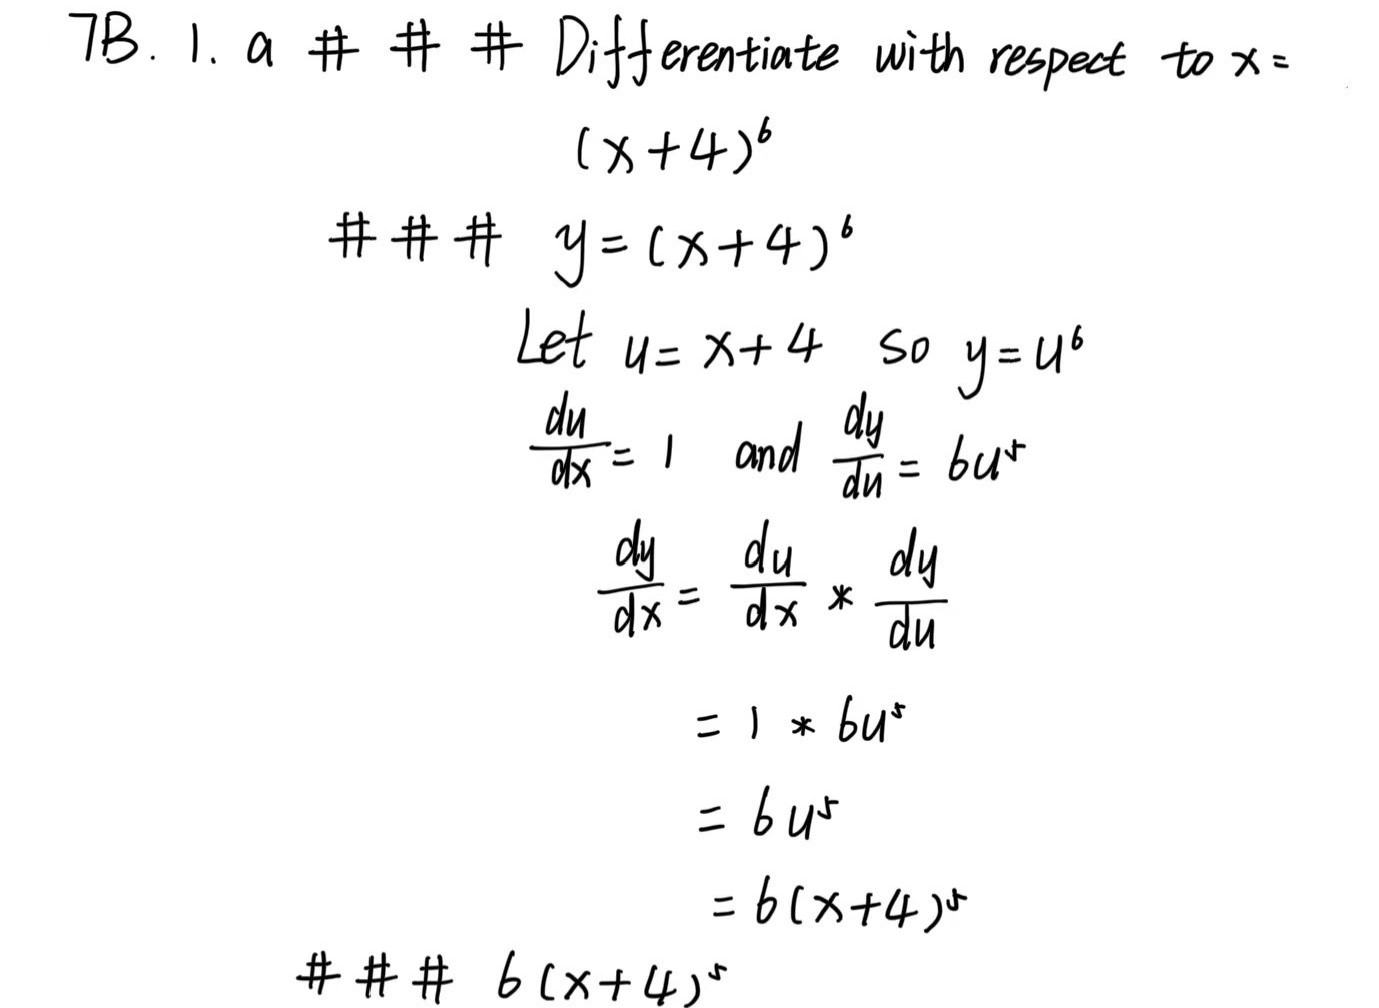 7B. 1. a # # # Differentiate with respect to x =
(x+4)⁶
# # # y = (x+4)⁶
Let u = x+4 so y = u⁶
du/dx = 1 and dy/du = 6u⁵
dy/dx = du/dx * dy/du
= 1 * 6u⁵
= 6u⁵
= 6(x+4)⁵
# # # 6(x+4)⁵